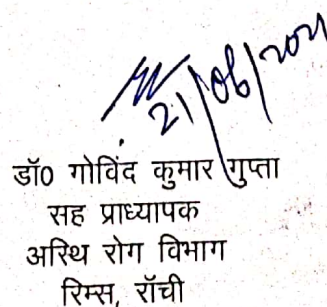 21/06/2021
डॉ0 गोविंद कुमार गुप्ता
सह प्राध्यापक
अस्थि रोग विभाग
रिम्स, राँची